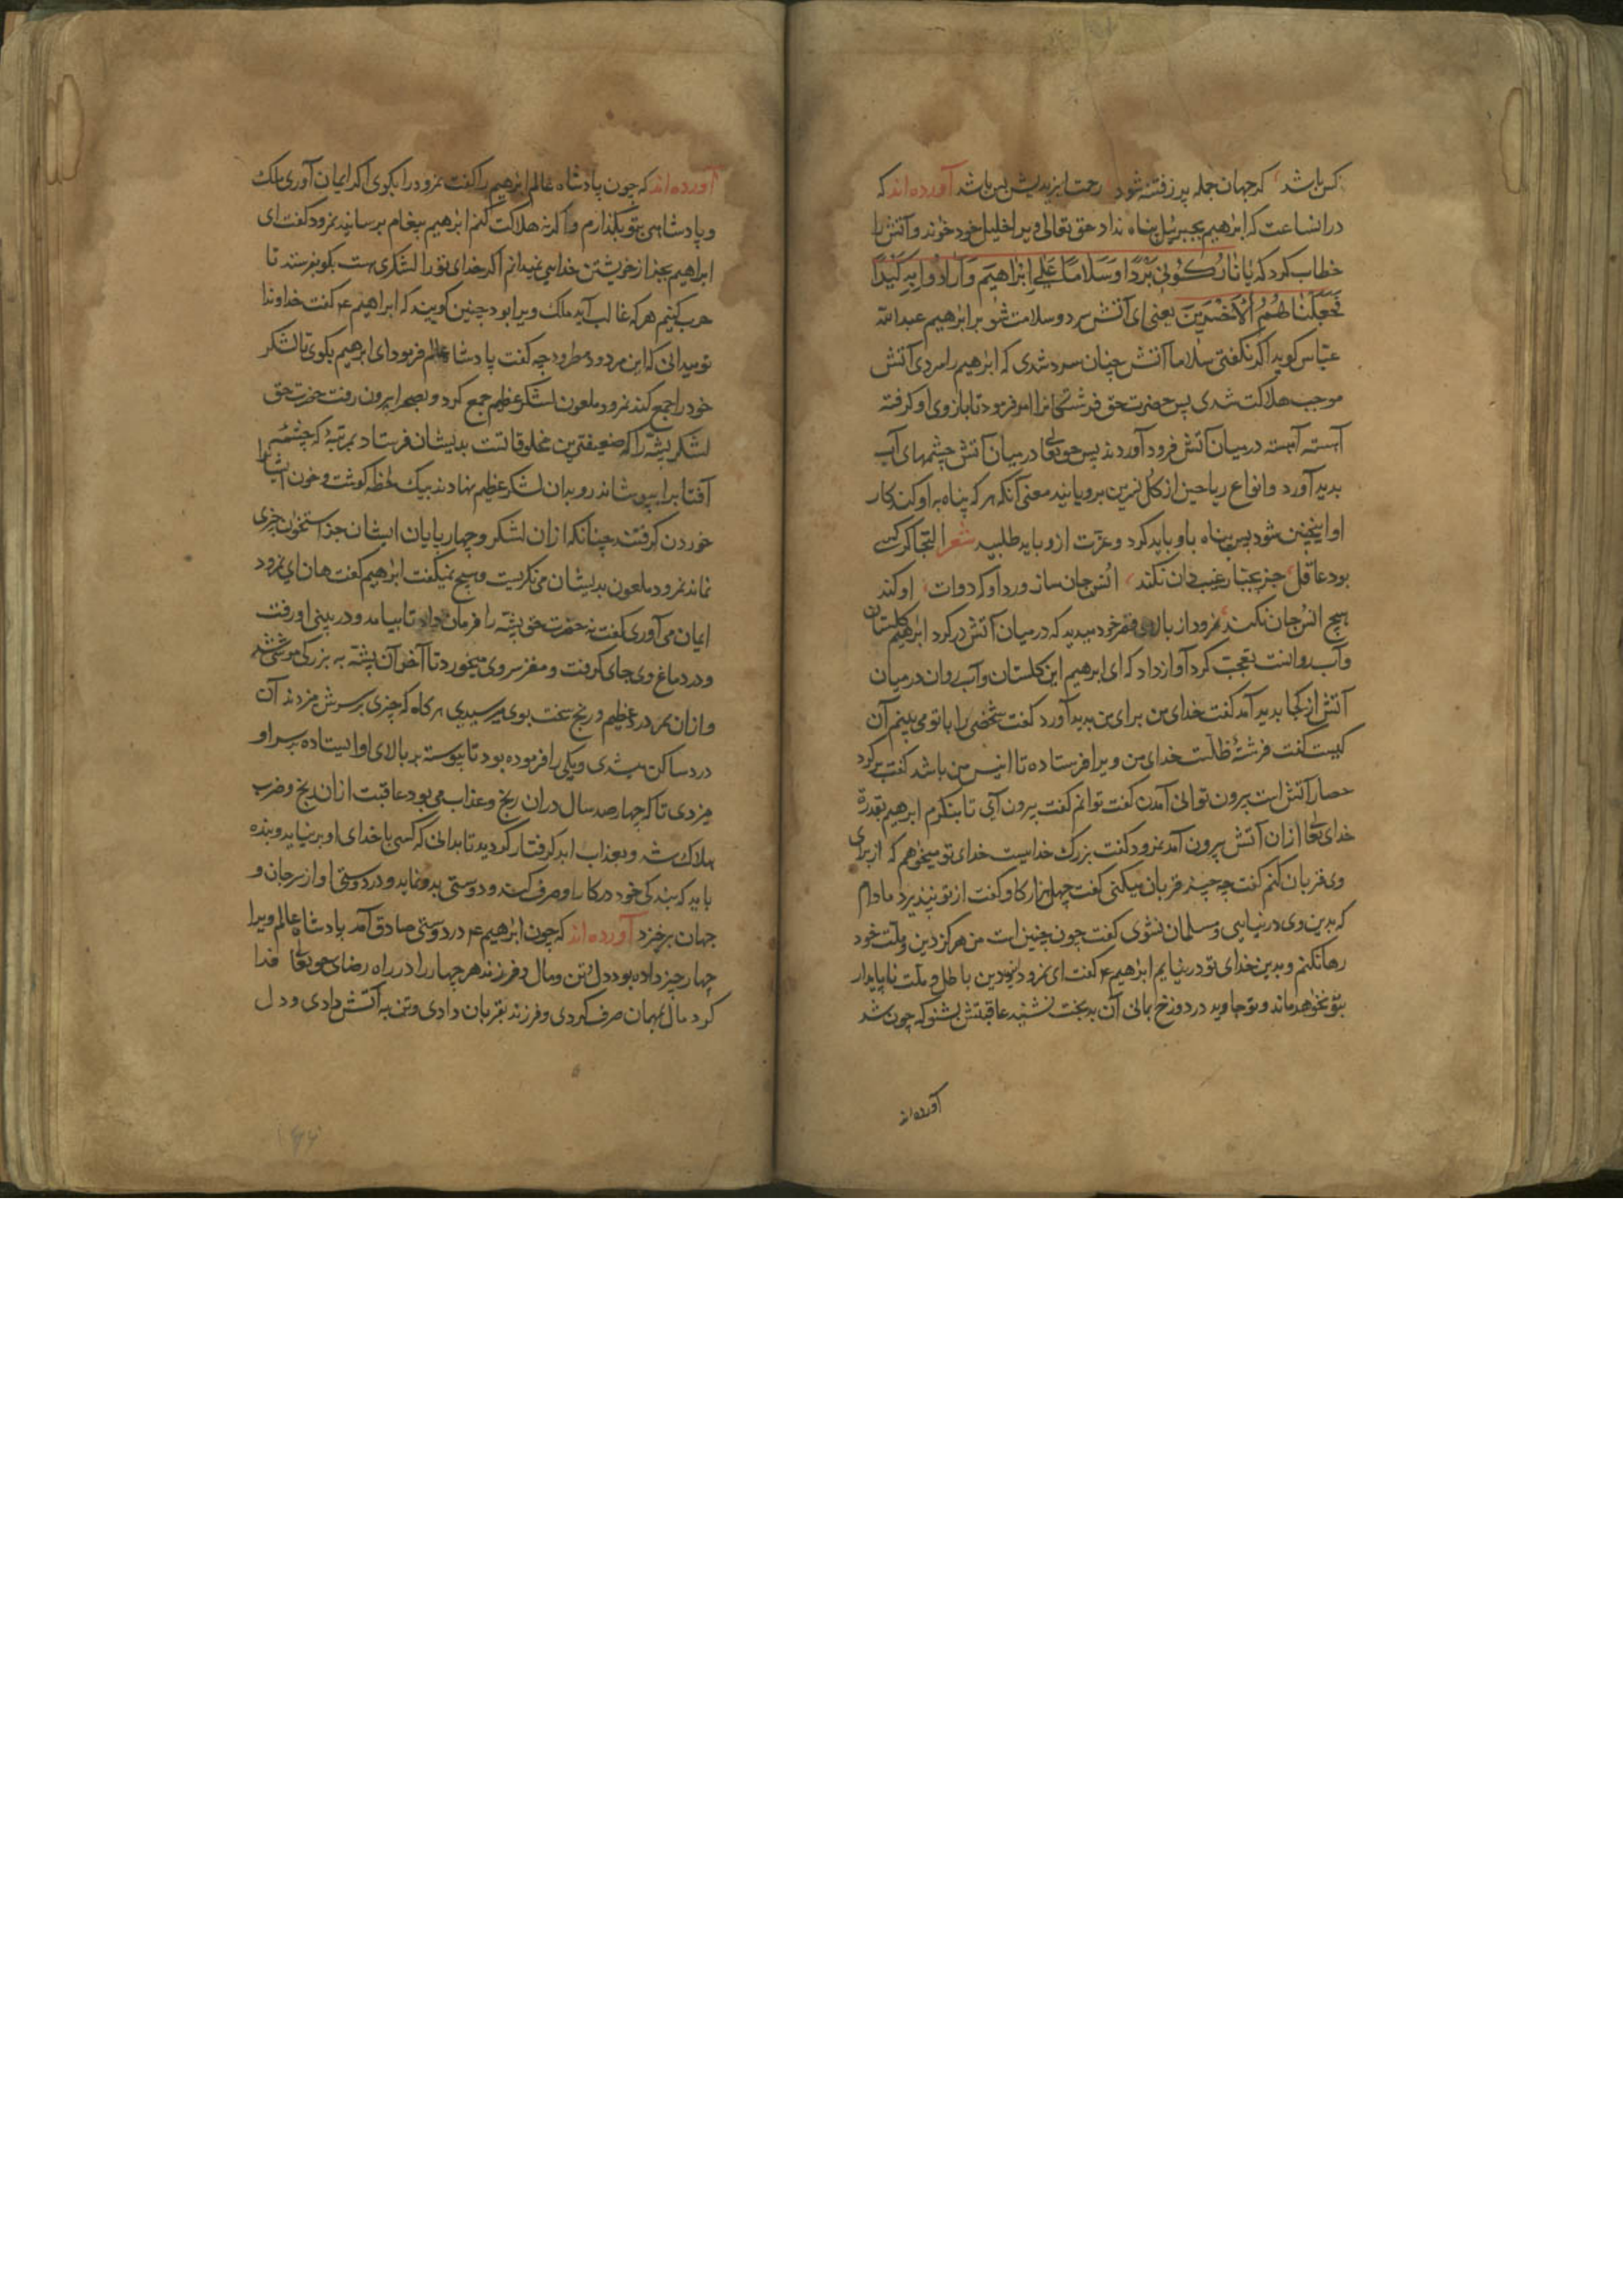 کس باشد که جهان جمله پر ز فتنه شود رحمت ایزدیش بس باشد آورده‌اند که
در انساعت که ابرهیم بجبرئیل پناه نداد حق تعالی ویرا خلیل خود خواند و آتش را
خطاب کرد که یَا نَارُ کُونِی بَرْدًا وَسَلَامًا عَلَی اِبْرَاهِیمَ وَاَرَادُوا بِهِ کَیْدًا
فَجَعَلْنَاهُمُ الْاَخْسَرِینَ یعنی ای آتش سرد و سلامت شو بر ابرهیم عبد الله
عباس کوید اکر نکفتی سلاما آتش چنان سرد شدی که ابرهیم را سردی آتش
موجب هلاکت شدی پس حضرت حق فرشتکانرا امر فرمود تا بازوی او کرفته
آهسته آهسته در میان آتش فرود آوردند پس حق تعا در میان آتش چشمهای آب
بدید آورد و انواع ریاحین از کل نسرین برویانید معنی آنکه هر که پناه به او کند کار
او اینچنین شود پس پناه باو باید کرد و عزت ازو باید طلبید شعر التجا کر کسی
بود عاقل جز بجبار غیب دان نکند انس جان ساز ورد او که دوات او کند
هیچ انس جان نکند نمرود از بالای قصر خود میدید که در میان آتش در کرد ابرهیم کلستان
و آب روانست تعجب کرد آواز داد که ای ابرهیم این کلستان و آب روان در میان
آتش از کجا بدید آمد کفت خدای من برای من بدید آورد کفت شخصی را با تو می بینم آن
کیست کفت فرشتهٔ ظلست خدای من ویرا فرستاده تا انیس من باشد کفت برکرد
حصار آتش است بیرون توانی آمدن کفت توانم کفت بیرون آی تا بنکرم ابرهیم بقدرة
خدای تعا از ان آتش بیرون آمد نمرود کفت بزرک خداییست خدای تو میخواهم که از برای
وی قربان کنم کفت چه چیز قربان میکنی کفت چهل هزار کاو کفت از تو نپذیرد مادام
که بدین وی در نیایی و مسلمان نشوی کفت چون چنین است من هرکز دین و ملت خود
رها نکنم و بدین خدای تو در نیایم ابرهیم ع کفت ای نمرود دین باطل و ملت ناپایدار
بتو نخواهد ماند و تو جاوید در دوزخ بمانی آن بدبخت نشنید عاقبتش بشنو که چون شد
آورده‌اند
آورده‌اند که چون پادشاه عالم ابرهیم را کفت نمرود را بکوی اکر ایمان آوری ملک
و پادشاهی بتو بکذارم و اکر نه هلاکت کنم ابرهیم پیغام برسانید نمرود کفت ای
ابراهیم بجز از خویشتن خدایی نمیدانم اکر خدای تو را لشکری هست بکو بفرستد تا
حرب کنیم هر که غالب آید ملک ویرا بود چنین کویند که ابراهیم ع کفت خداوندا
تو میدانی که این مردود مطرود چه کفت پادشاه عالم فرمود ای ابرهیم بکوی تا لشکر
خود را جمع کند نمرود ملعون لشکر عظیم جمع کرد و بصحرا بیرون رفت حضرت حق
لشکر پشه را که ضعیفترین مخلوقاتست بدیشان فرستاد بمرتبهٔ که چشمه
آفتابرا بپوشاند رو بدان لشکر عظیم نهادند بیک لحظه کوشت و خون ایشانرا
خوردن کرفتند چنانکه از ان لشکر و چهارپایان ایشان جز استخوان چیزی
نماند نمرود ملعون بدیشان می نکریست و هیچ نمیکفت ابرهیم کفت هان ای نمرود
ایمان می آوری کفت نه حضرت حق پشه را فرمان داد تا بیامد و در بینی او رفت
و در دماغ وی جای کرفت و مغز سر وی میخورد تا آخر آن پشه به بزرکی موشی شد
و از ان سر درد عظیم و رنج سخت بوی میرسیدی هر کاه که چیزی بر سرش میزدند آن
درد ساکن میشدی و یکی را فرموده بود تا پیوسته بر بالای او ایستاده بر سر او
میزدی تا که چهار صد سال در ان رنج و عذاب می بود عاقبت از ان رنج و ضرب
هلاک شد و بعذاب ابد کرفتار کردید تا بدانی که کسی با خدای او بر نیاید و بنده
باید که بندکی خود در کار او صرف کند و دوستی بدو نماید و در دوستی او از سر جان و
جهان برخیزد آورده‌اند که چون ابرهیم ع در دوستی صادق آمد پادشاه عالم ویرا
چهار چیز داده بود دل و تن و مال و فرزند هر چهار را در راه رضای حق تعا فدا
کرد مال بمهمان صرف کردی و فرزند بقربان دادی و تن به آتش دادی و دل